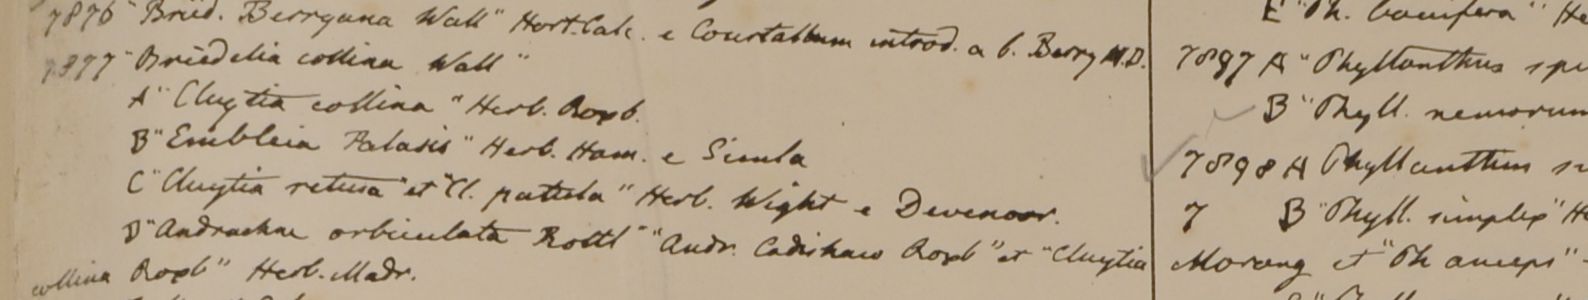 7876 "Bried. Berryana Wall" Hort. Calc. e Courtallum introd. a b. Berry M.D.
7877 "Briedelia collina Wall"
A "Cluytia collina" Herb. Roxb.
B "Embleia Palasis" Herb. Ham. e Simla
C "Cluytia retusa" et "Cl. patula" Herb. Wight e
D "Andrachne orbiculata Rottl" "Andr. Cadishaw Roxb" et "Cluytia
collina Roxb" Herb. Madr.
E "Ph. baccifera" He
7897 A "Phyllanthus spe
B "Phyll. nemorum
7898 A Phyllanthus s
7 B "Phyll. simplex" He
Morang et "Ph anceps" -